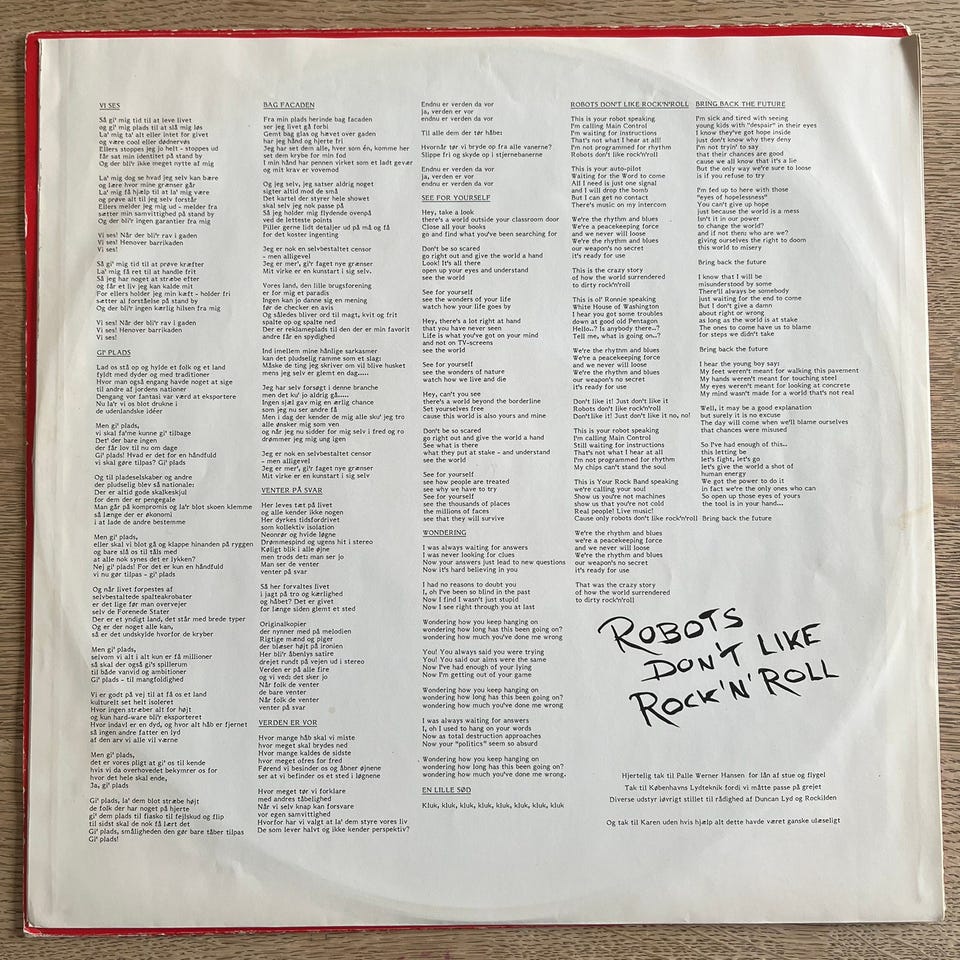 VI SES
Så gi' mig tid til at leve livet
og gi' mig plads til at slå mig løs
La' mig ta' alt eller intet for givet
og være cool eller dødnervøs
Ellers stoppes jeg jo helt - stoppes ud
Får sat min identitet på stand by
Og der bli'r ikke meget nytte af mig
La' mig dog se hvad jeg selv kan bære
og lære hvor mine grænser går
La' mig få hjælp til at la' mig være
og prøve alt til jeg selv forstår
Ellers melder jeg mig ud - melder fra
sætter min samvittighed på stand by
Og der bli'r ingen garantier fra mig
Vi ses! Når der bli'r rav i gaden
Vi ses! Henover barrikaden
Vi ses!
Så gi' mig tid til at prøve kræfter
La' mig få ret til at handle frit
Så jeg har noget at stræbe efter
og får et liv jeg kan kalde mit
For ellers holder jeg min kæft - holder fri
sætter al forståelse på stand by
Og der bli'r ingen kærlig hilsen fra mig
Vi ses! Når der bli'r rav i gaden
Vi ses! Henover barrikaden
Vi ses!
GI' PLADS
Lad os stå op og hylde et folk og et land
fyldt med dyder og med traditioner
Hvor man også engang havde noget at sige
til andre af jordens nationer
Dengang vor fantasi var værd at eksportere
Nu la'r vi os blot drukne i
de udenlandske idéer
Men gi' plads,
vi skal fa'me kunne gi' tilbage
Det' der bare ingen
der får lov til nu om dage
Gi' plads! Hvad er det for en håndfuld
vi skal gøre tilpas? Gi' plads
Og til pladeselskaber og andre
der pludselig blev så nationale:
Der er altid gode skalkeskjul
for dem der er pengegale
Man går på kompromis og la'r blot skoen klemme
så længe der er økonomi
i at lade de andre bestemme
Men gi' plads,
eller skal vi blot gå og klappe hinanden på ryggen
og bare slå os til tåls med
at alle nok synes det er lykken?
Nej gi' plads! For det er kun en håndfuld
vi nu gør tilpas - gi' plads
Og når livet forpestes af
selvbestaltede spalteakrobater
er det lige før man overvejer
selv de Forenede Stater
Der er et yndigt land, det står med brede typer
Og er der noget alle kan,
så er det undskylde hvorfor de kryber
Men gi' plads,
selvom vi alt i alt kun er få millioner
så skal der også gi's spillerum
til både vanvid og ambitioner
Gi' plads - til mangfoldighed
Vi er godt på vej til at få os et land
kulturelt set helt isoleret
Hvor ingen stræber alt for højt
og kun hard-ware bli'r eksporteret
Hvor indavl er en dyd, og hvor alt håb er fjernet
så ingen andre fatter en lyd
af den arv vi alle vil værne
Men gi' plads,
det er vores pligt at gi' os til kende
hvis vi da overhovedet bekymrer os for
hvor det hele skal ende,
Ja, gi' plads
Gi' plads, la' dem blot stræbe højt
de folk der har noget på hjerte
gi' dem plads til fiasko til fejlskud og flip
til sidst skal de nok få lært det
Gi' plads, småligheden den gør bare tåber tilpas
Gi' plads!
BAG FACADEN
Fra min plads herinde bag facaden
ser jeg livet gå forbi
Gemt bag glas og hævet over gaden
har jeg hånd og hjerte fri
Jeg har set dem alle, hver som én, komme her
set dem krybe for min fod
I min hånd har pennen virket som et ladt gevær
og mit krav er vovemod
Og jeg selv, jeg satser aldrig noget
sigter altid mod de små
Det kartel der styrer hele showet
skal selv jeg nok passe på
Så jeg holder mig flydende ovenpå
ved de letteste points
Piller gerne lidt detaljer ud på må og få
for det koster ingenting
Jeg er nok en selvbestaltet censor
- men alligevel
Jeg er mer', gi'r faget nye grænser
Mit virke er en kunstart i sig selv.
Vores land, den lille brugsforening
er for mig et paradis
Ingen kan jo danne sig en mening
før de checker en avis
Og således bliver ord til magt, kvit og frit
spalte op og spalte ned
Der er reklameplads til den der er min favorit
andre får en spydighed
Ind imellem mine hånlige sarkasmer
kan det pludselig ramme som et slag:
Måske de ting jeg skriver om vil blive husket
mens jeg selv er glemt en dag.....
Jeg har selv forsøgt i denne branche
men det ku' jo aldrig gå.....
Ingen sjæl gav mig en ærlig chance
som jeg nu ser andre få
Men i dag der kender de mig alle sku' jeg tro
alle ønsker mig som ven
og når jeg nu sidder for mig selv i fred og ro
drømmer jeg mig ung igen
Jeg er nok en selvbestaltet censor
- men alligevel
Jeg er mer', gi'r faget nye grænser
Mit virke er en kunstart i sig selv
VENTER PÅ SVAR
Her leves tæt på livet
og alle kender ikke nogen
Her dyrkes tidsfordrivet
som kollektiv isolation
Neonrør og hvide løgne
Drømmespind og ugens hit i stereo
Køligt blik i alle øjne
men trods det: man ser jo
Man ser de venter
venter på svar
Så her forvaltes livet
i jagt på tro og kærlighed
og håbet? Det er givet
for længe siden glemt et sted
Originalkopier
der nynner med på melodien
Rigtige mænd og piger
der blæser højt på ironien
Her bli'r åbenlys satire
drejet rundt på vejen ud i stereo
Verden er på alle fire
og vi ved: det sker jo
Når folk de venter
de bare venter
Når folk de venter
venter på svar
VERDEN ER VOR
Hvor mange håb skal vi miste
hvor meget skal brydes ned
Hvor mange kaldes de sidste
hvor meget ofres for fred
Førend vi besinder os og åbner øjnene
ser at vi befinder os et sted i løgnene
Hvor meget tør vi forklare
med andres tåbelighed
Når vi selv knap kan forsvare
vor egen samvittighed
Hvorfor har vi valgt at la' dem styre vores liv
De som lever halvt og ikke kender perspektiv?
Endnu er verden da vor
ja, verden er vor
endnu er verden da vor
Til alle dem der tør håbe:
Hvornår tør vi bryde op fra alle vanerne?
Slippe fri og skyde op i stjernebanerne
Endnu er verden da vor
ja, verden er vor
endnu er verden da vor
SEE FOR YOURSELF
Hey, take a look
there's a world outside your classroom door
Close all your books
go and find what you've been searching for
Don't be so scared
go right out and give the world a hand
Look! It's all there
open up your eyes and understand
see the world
See for yourself
see the wonders of your life
watch how your life goes by
Hey, there's a lot right at hand
that you have never seen
Life is what you've got on your mind
and not on TV-screens
see the world
See for yourself
see the wonders of nature
watch how we live and die
Hey, can't you see
there's a world beyond the borderline
Set yourselves free
cause this world is also yours and mine
Don't be so scared
go right out and give the world a hand
See what is there
what they put at stake - and understand
see the world
See for yourself
see how people are treated
see why we have to try
See for yourself
see the thousands of places
the millions of faces
see that they will survive
WONDERING
I was always waiting for answers
I was never looking for clues
Now your answers just lead to new questions
Now it's hard believing in you
I had no reasons to doubt you
I, oh I've been so blind in the past
Now I find I wasn't just stupid
Now I see right through you at last
Wondering how you keep hanging on
wondering how long has this been going on?
wondering how much you've done me wrong
You! You always said you were trying
You! You said our aims were the same
Now I've had enough of your lying
Now I'm getting out of your game
Wondering how you keep hanging on
wondering how long has this been going on?
wondering how much you've done me wrong
I was always waiting for answers
I, oh I used to hang on your words
Now as total destruction approaches
Now your "politics" seem so absurd
Wondering how you keep hanging on
wondering how long has this been going on?
wondering how much you've done me wrong.
EN LILLE SØD
Kluk, kluk, kluk, kluk, kluk, kluk, kluk, kluk
ROBOTS DON'T LIKE ROCK'N'ROLL
This is your robot speaking
I'm calling Main Control
I'm waiting for instructions
That's not what I hear at all!
I'm not programmed for rhythm
Robots don't like rock'n'roll
This is your auto-pilot
Waiting for the Word to come
All I need is just one signal
and I will drop the bomb
But I can get no contact
There's music on my intercom
We're the rhythm and blues
We're a peacekeeping force
and we never will loose
We're the rhythm and blues
our weapon's no secret
it's ready for use
This is the crazy story
of how the world surrendered
to dirty rock'n'roll
This is ol' Ronnie speaking
White House of Washington
I hear you got some troubles
down at good old Pentagon
Hello..? Is anybody there..?
Tell me, what is going on..?
We're the rhythm and blues
We're a peacekeeping force
and we never will loose
We're the rhythm and blues
our weapon's no secret
it's ready for use
Don't like it! Just don't like it
Robots don't like rock'n'roll
Don't like it! Just don't like it no, no!
This is your robot speaking
I'm calling Main Control
Still waiting for instructions
That's not what I hear at all
I'm not programmed for rhythm
My chips can't stand the soul
This is Your Rock Band speaking
we're calling your soul
Show us you're not machines
show us that you're not cold
Real people! Live music!
Cause only robots don't like rock'n'roll
We're the rhythm and blues
we're a peacekeeping force
and we never will loose
We're the rhythm and blues
our weapon's no secret
it's ready for use
That was the crazy story
of how the world surrendered
to dirty rock'n'roll
BRING BACK THE FUTURE
I'm sick and tired with seeing
young kids with "despair" in their eyes
I know they've got hope inside
just don't know why they deny
I'm not tryin' to say
that their chances are good
cause we all know that it's a lie
But the only way we're sure to loose
is if you refuse to try
I'm fed up to here with those
"eyes of hopelessness"
You can't give up hope
just because the world is a mess
Isn't it in our power
to change the world?
and if not then: who are we?
giving ourselves the right to doom
this world to misery
Bring back the future
I know that I will be
misunderstood by some
There'll always be somebody
just waiting for the end to come
But I don't give a damn
about right or wrong
as long as the world is at stake
The ones to come have us to blame
for steps we didn't take
Bring back the future
I hear the young boy say:
My feet weren't meant for walking this pavement
My hands weren't meant for touching steel
My eyes weren't meant for looking at concrete
My mind wasn't made for a world that's not real
Well, it may be a good explanation
but surely it is no excuse
The day will come when we'll blame ourselves
that chances were misused
So I've had enough of this..
this letting be
let's fight, let's go
let's give the world a shot of
human energy
We got the power to do it
in fact we're the only ones who can
So open up those eyes of yours
the tool is in your hand...
Bring back the future
ROBOTS
DON'T LIKE
ROCK'N'ROLL
Hjertelig tak til Palle Werner Hansen for lån af stue og flygel
Tak til Københavns Lydteknik fordi vi måtte passe på grejet
Diverse udstyr iøvrigt stillet til rådighed af Duncan Lyd og Rockilden
Og tak til Karen uden hvis hjælp alt dette havde været ganske ulæseligt